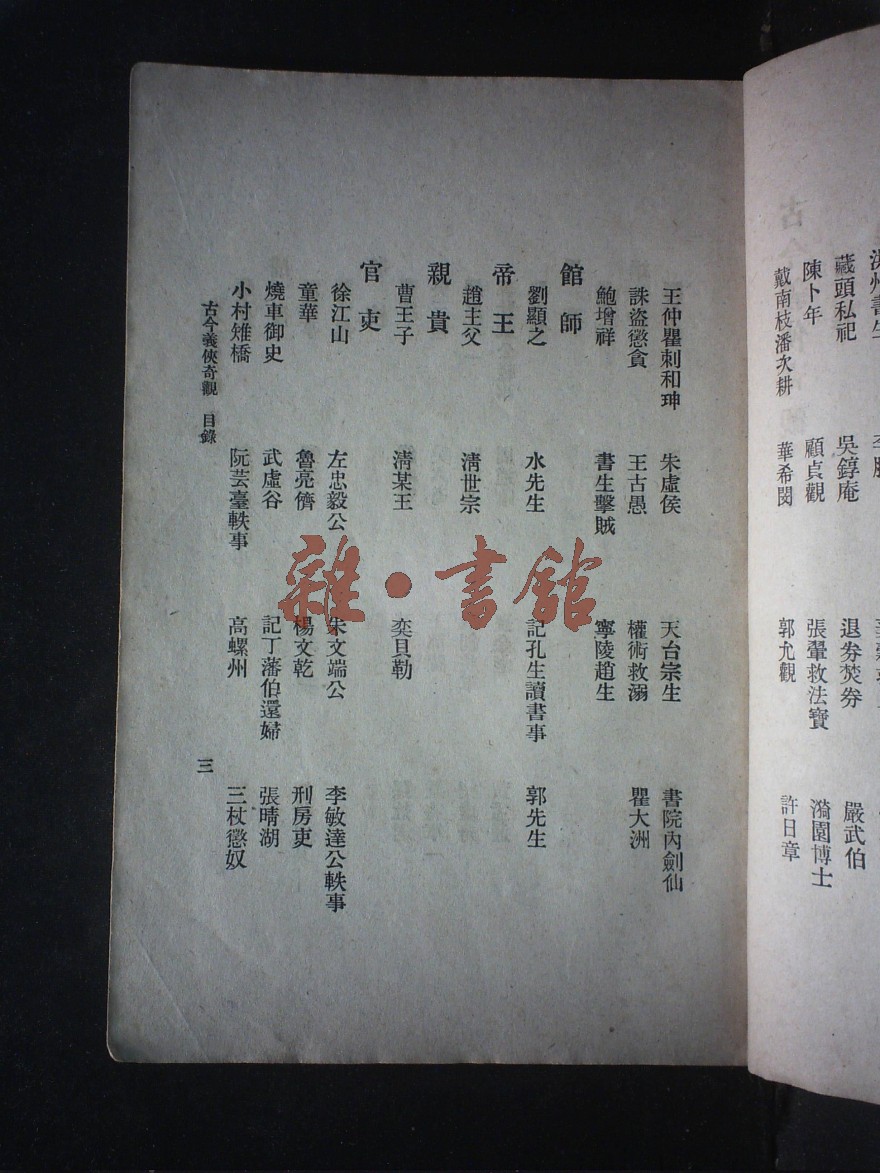 藏頭私祀　吳錞庵　退券焚券　嚴武伯
陳卜年　顧貞觀　張鞏救法寶　漪園博士
戴南枝潘次耕　華希閔　郭允觀　許日章
王仲瞿刺和珅　朱虛侯　天台宗生　書院內劍仙
誅盜懲貪　王古愚　權術救溺　瞿大洲
鮑增祥　書生擊賊　寧陵趙生
館師
劉顯之　水先生　記孔生讀書事　郭先生
帝王
趙主父　清世宗
親貴
曹王子　清某王　奕貝勒
官吏
徐江山　左忠毅公　朱文端公　李敏達公軼事
童華　魯亮儕　楊文乾　刑房吏
燒車御史　武虛谷　記丁藩伯還婦　張晴湖
小村雉橋　阮芸臺軼事　高螺州　三杖懲奴
古今義俠奇觀　目錄　三
雜·書館